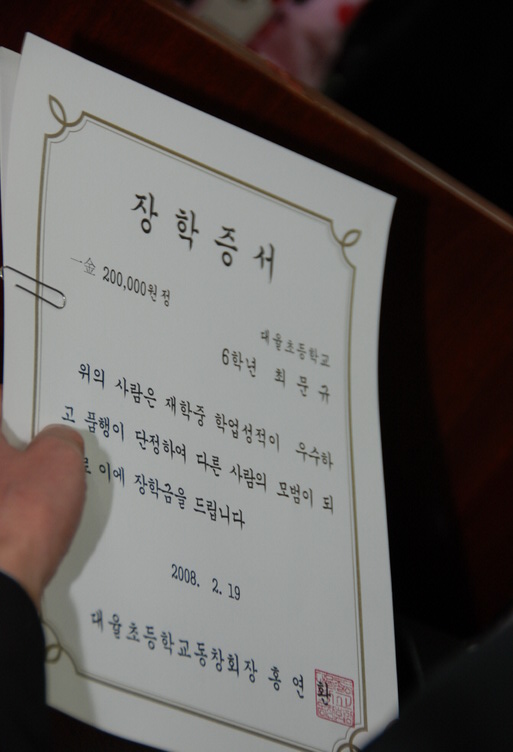 장학증서
一金 200,000원정
대율초등학교
6학년 최문규
위의 사람은 재학중 학업성적이 우수하
고 품행이 단정하여 다른 사람의 모범이 되
로 이에 장학금을 드립니다
2008. 2. 19
대율초등학교동창회장 홍연환